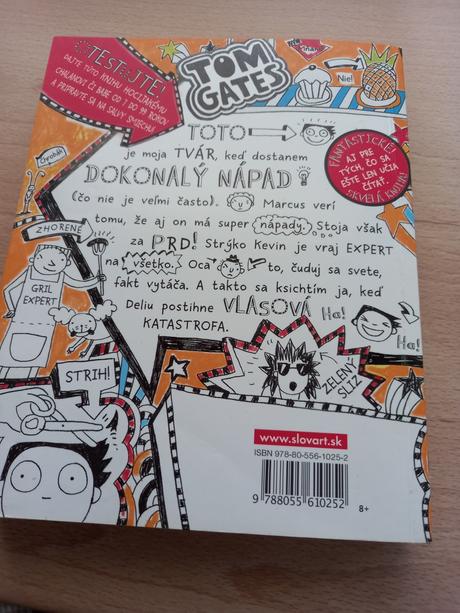 OTESTUJTE!
DAJTE TÚTO KNIHU HOCIJAKÉMU
CHALANOVI ČI BABE OD 7 DO 99 ROKOV
A PRIPRAVTE SA NA SALVY SMIECHU!
TOM
GATES
Nie!
FANTASTICKÉ!
AJ PRE
TÝCH, ČO SA
EŠTE LEN UČIA
ČÍTAŤ.
SKVELÁ KNIHA!
Chrohák
TOTO
je moja TVÁR, keď dostanem
DOKONALÝ NÁPAD!
(čo nie je veľmi často). Marcus verí
tomu, že aj on má super nápady. Stoja však
za PRD! Strýko Kevin je vraj EXPERT
na všetko. Oca to, čuduj sa svete,
fakt vytáča. A takto sa ksichtím ja, keď
Deliu postihne VLASOVÁ
KATASTROFA.
Ha!
Ha!
ZHORENÉ
GRIL
EXPERT
STRIH!
ZELENÝ
SLIZ
www.slovart.sk
ISBN 978-80-556-1025-2
9 788055 610252
8+